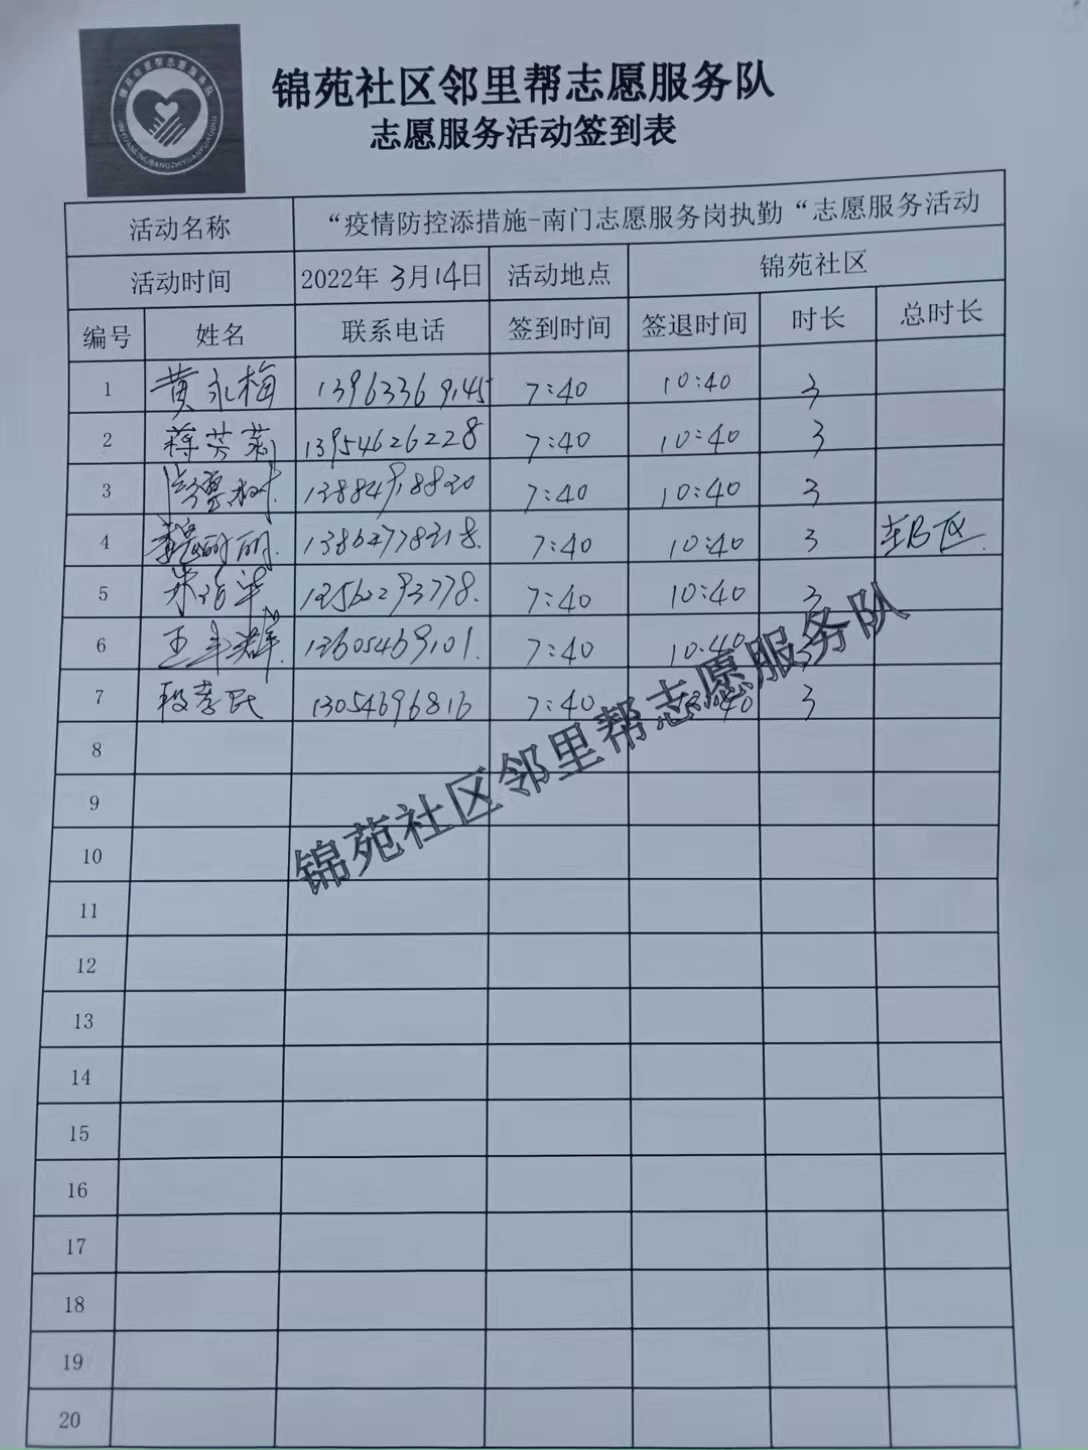 锦苑社区邻里帮志愿服务队
志愿服务活动签到表
活动名称 “疫情防控添措施-南门志愿服务岗执勤“志愿服务活动
活动时间 2022年 3月14日 活动地点 锦苑社区
编号 姓名 联系电话 签到时间 签退时间 时长 总时长
1 黄永梅 7:40 10:40 3
2 蒋芬莉 13954626228 7:40 10:40 3
3 7:40 10:40 3
4 7:40 10:40 3
5 7:40 10:40 3
6 王 13605469101. 7:40 10:40 3
7 段孝民 13054696816 7:40 10:40 3
8
9
10
11
12
13
14
15
16
17
18
19
20
锦苑社区邻里帮志愿服务队